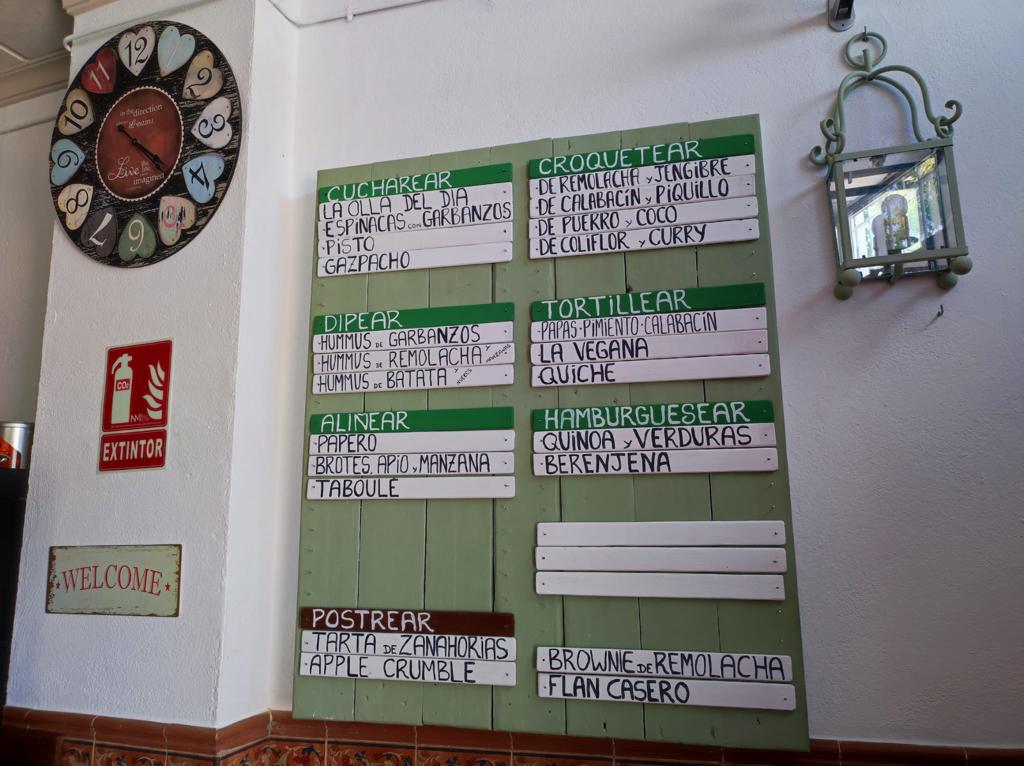 12
11
10
9
8
7
6
5
4
3
2
in the direction
Live the life
imagined
CO2
EXTINTOR
WELCOME
CUCHAREAR
LA OLLA DEL DIA
ESPINACAS CON GARBANZOS
·PISTO
GAZPACHO
CROQUETEAR
·DE REMOLACHA Y JENGIBRE
·DE CALABACÍN Y PIQUILLO
·DE PUERRO Y COCO
·DE COLIFLOR Y CURRY
DIPEAR
·HUMMUS DE GARBANZOS
·HUMMUS DE REMOLACHA Y
·HUMMUS DE BATATA Y NUECES
TORTILLEAR
·PAPAS·PIMIENTO·CALABACÍN
LA VEGANA
·QUICHE
ALIÑEAR
·PAPERO
·BROTES, APIO Y MANZANA
·TABOULÉ
HAMBURGUESEAR
·QUINOA Y VERDURAS
·BERENJENA
POSTREAR
·TARTA DE ZANAHORIAS
·APPLE CRUMBLE
·BROWNIE DE REMOLACHA
·FLAN CASERO